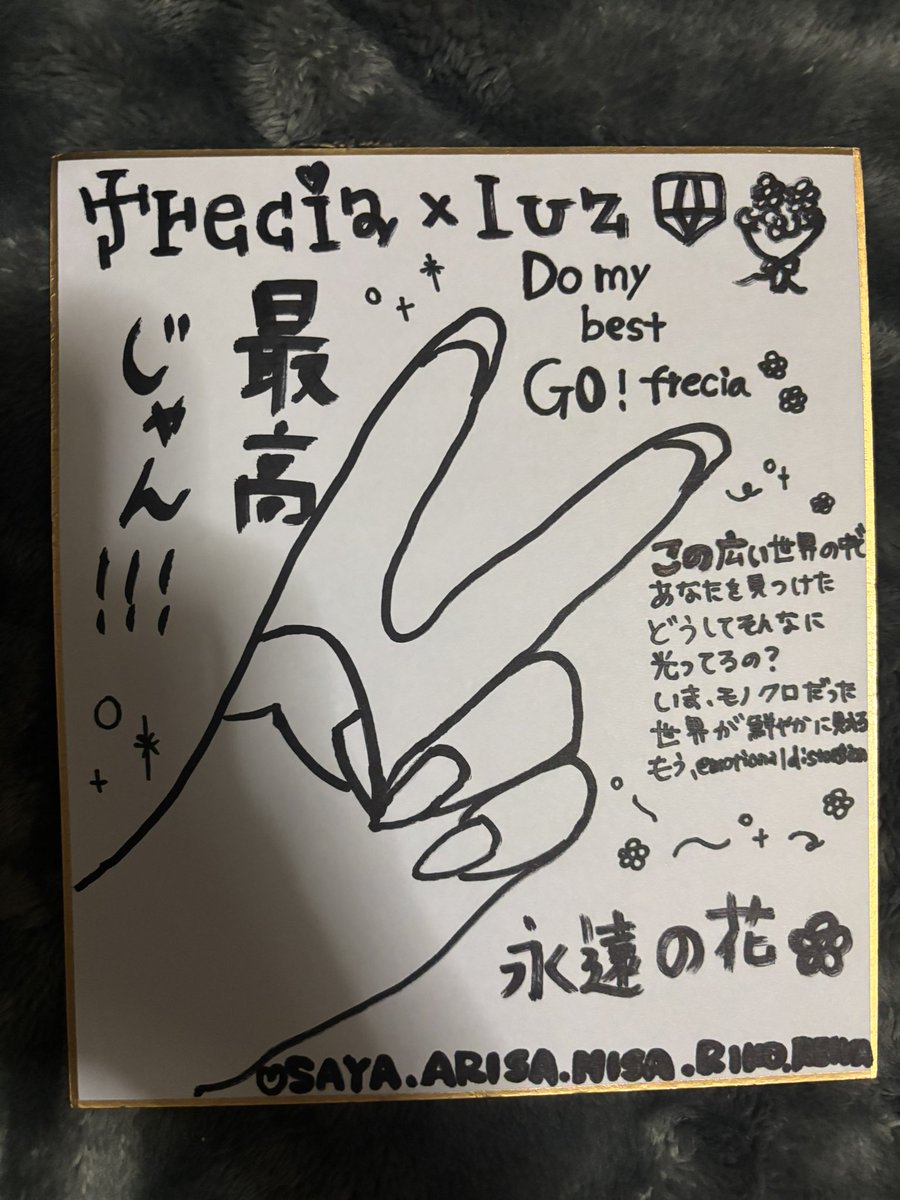 frecia × luz
Do my
best
GO! frecia
最高
じゃん!!!
この広い世界の中で
あなたを見つけた
どうしてそんなに
光ってるの?
いま、モノクロだった
世界が鮮やかに見える
もう、emotional distortion
永遠の花
SAYA.ARISA.MISA.RIKO.